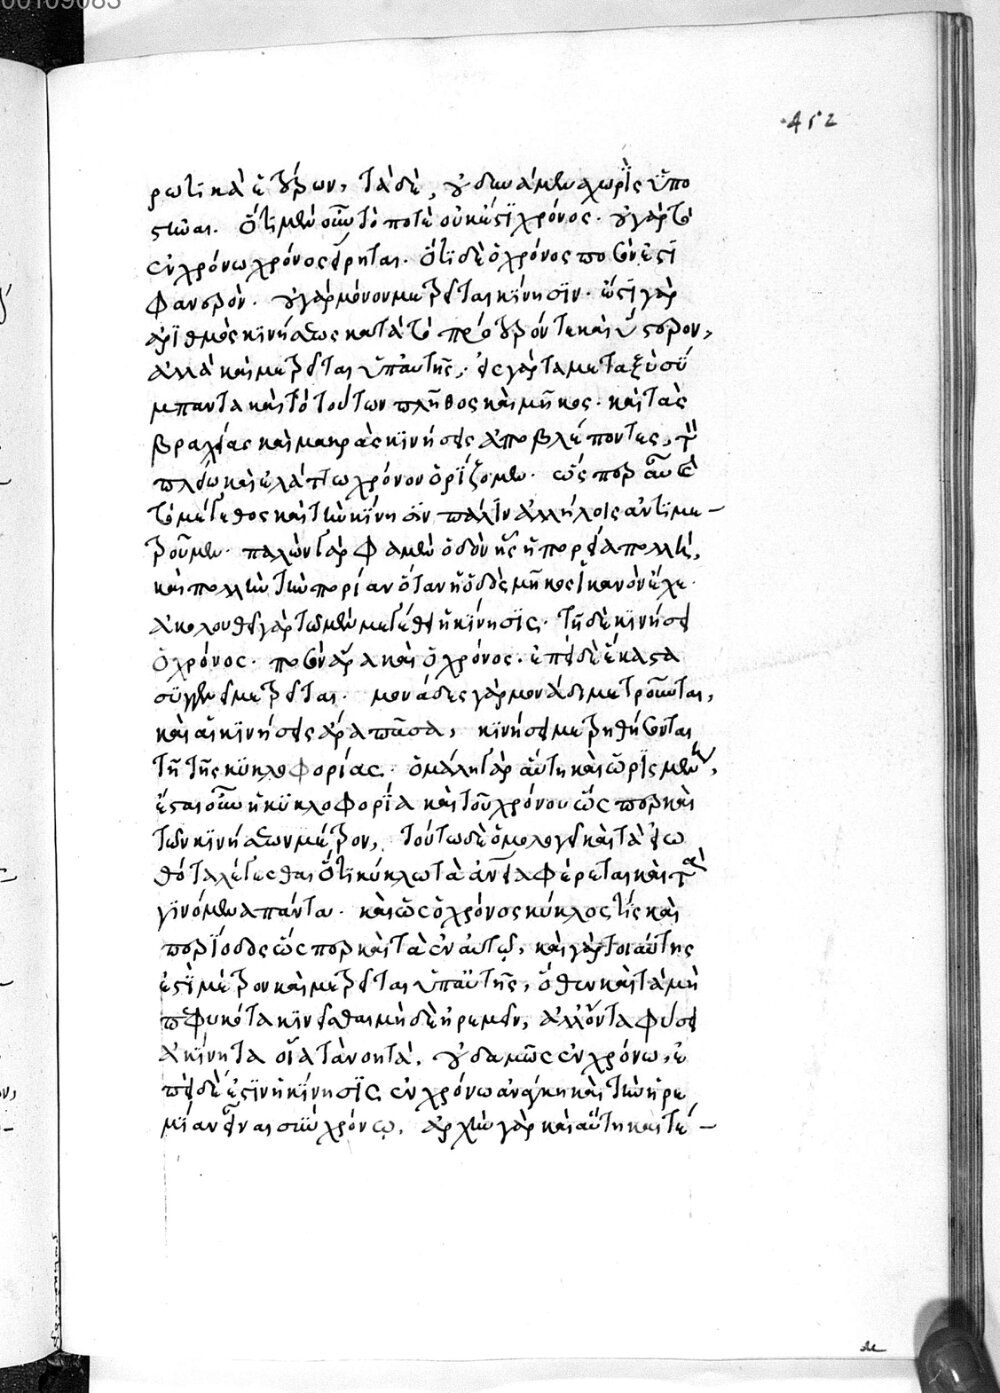 00109083
452
ρωτικὰ ἑτέρων, τὰ δὲ, οὐδενὰ μὲν χωρὶς ὑπο
στῶσι. ὅτι μὲν οὖν τό ποτε οὐκ ἔστι χρόνος. οὐ γὰρ τὸ
ἐν χρόνω χρόνος εἴρηται. ὅτι δὲ ὁ χρόνος ποσόν ἐστι
φανερὸν. οὐ γὰρ μόνον μετρεῖται κίνησιν. ὥς τι γὰρ
ἀριθμὸς κινήσεως κατὰ τὸ πρότερόν τε καὶ ὕστερον,
ἀλλὰ καὶ μετρεῖται ὑπ αὐτῆς. εἰς γὰρ τὰ μεταξὺ σύ
μπαντα καὶ τὸ τούτων πλῆθος καὶ μῆκος. καὶ τὰς
βραχείας καὶ μακρὰς κινήσεις ἀποβλέποντες, τῶ
πλείω καὶ ἐλάττω χρόνον ὁρίζομεν. ὥσπερ οὖν
τὸ μέγεθος καὶ τὴν κίνησιν πάλιν ἀλλήλοις ἀντιμε-
τροῦμεν. παλὼν γὰρ φαμὲν ὁδὸν ἧς ἡ πορεία πολλή,
καὶ πολλὴν τὴν πορίαν ὅταν ἡ ὁδὸς μῆκος ἱκανὸν ἔχει.
ἀκολουθεῖ γὰρ τῶ μὲν μεγέθει ἡ κίνησις. τῆ δὲ κινήσει
ὁ χρόνος. ποσὸν ἄρα καὶ ὁ χρόνος. ἐπεὶ δὲ ἕκαστα
συγγενεῖ μετρεῖται. μονάδες γὰρ μονάδι μετροῦνται,
καὶ αἱ κινήσεις ἄρα πᾶσαι, κινήσει μετρηθήσονται
τῆ τῆς κυκλοφορίας. ὁμαλὴ γὰρ αὕτη καὶ ὡρισμένη,
ἔσται οὖν ἡ κυκλοφορία καὶ τοῦ χρόνου ὥσπερ καὶ
τῶν κινήσεων μέτρον, τούτω δὲ ὁμολογεῖ καὶ τὰ εἰω
θότα λέγεσθαι ὅτι κύκλω τὰ ἀνθεια φέρεται καὶ τὰ
γινόμενα πάντα. καὶ ὡς ὁ χρόνος κύκλος τίς καὶ
περίοδος ὥσπερ καὶ τὰ ἐν αὐτῷ, καὶ γάρτοι αὐτῆς
ἐστὶ μέτρον καὶ μετρεῖται ὑπ αὐτῆς, ὅθεν καὶ τὰ μὴ
πεφυκότα κινεῖσθαι μὴ δὲ ἠρεμεῖν, ἀλλ ὄντα φύσει
ἀκίνητα οἷα τὰ νοητὰ, οὐδαμῶς ἐν χρόνω, ἐ
πεὶ δέ ἐστιν ἡ κίνησις ἐν χρόνω ἀνάγκη καὶ τὴν ἠρε
μίαν εἶναι σὺν χρόνῳ. ἀρχὴν γὰρ καὶ αὕτη καὶ τέ-